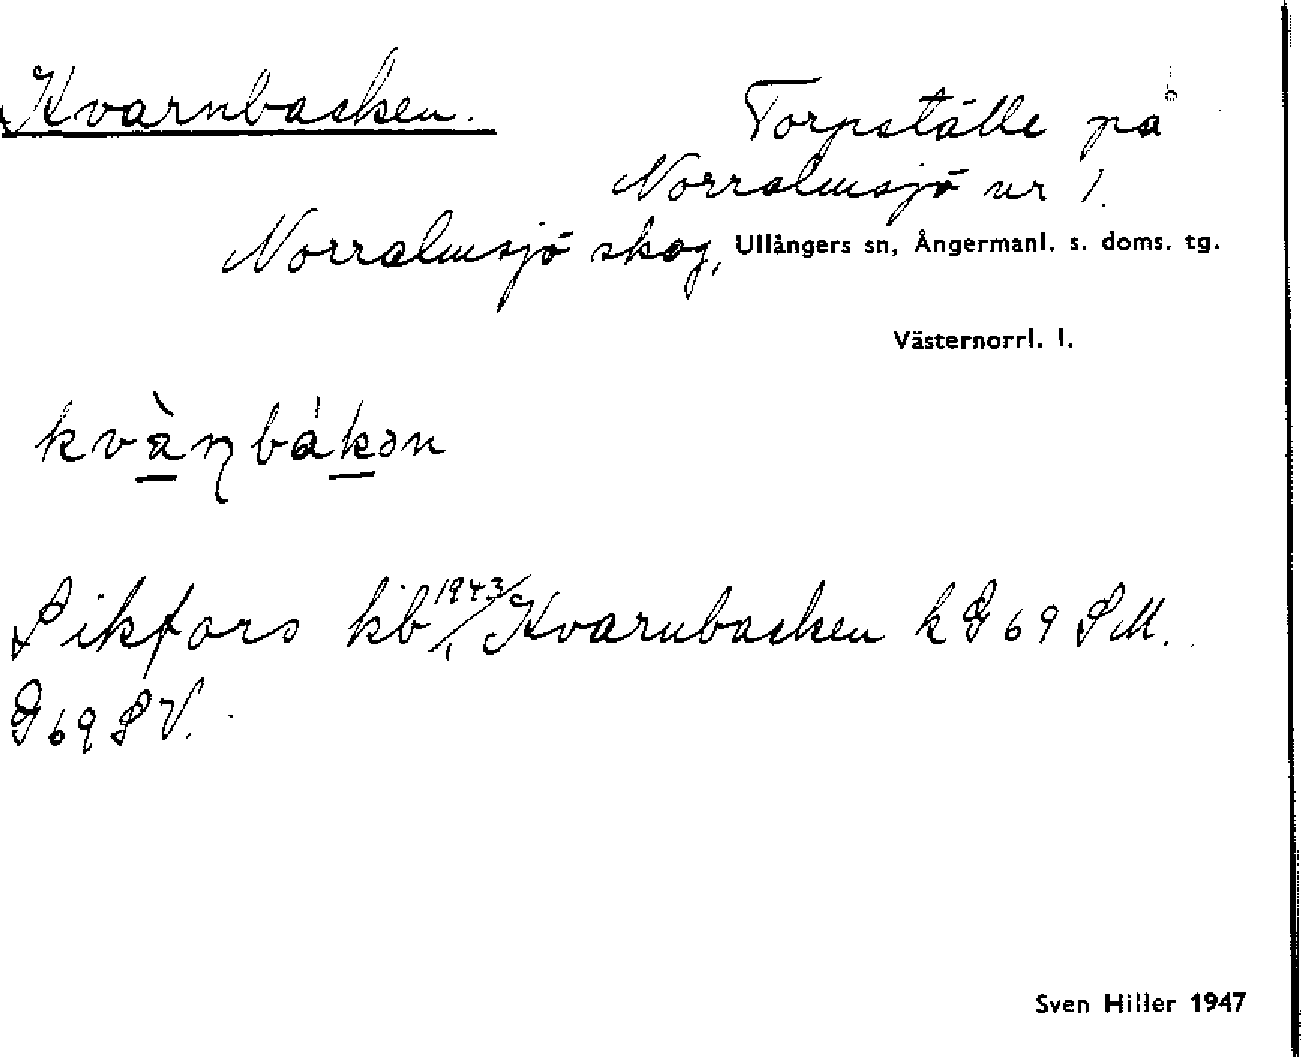 Kvarnbacken.
Torpställe på
Norralmsjö nr 1.
Norralmsjö skog, Ullångers sn, Ångermanl. s. doms. tg.
Västernorrl. l.
kvàɳbákən
Sikfors kb 1943/1 Kvarnbacken k G 69 SM.
G 69 SV.
Sven Hiller 1947